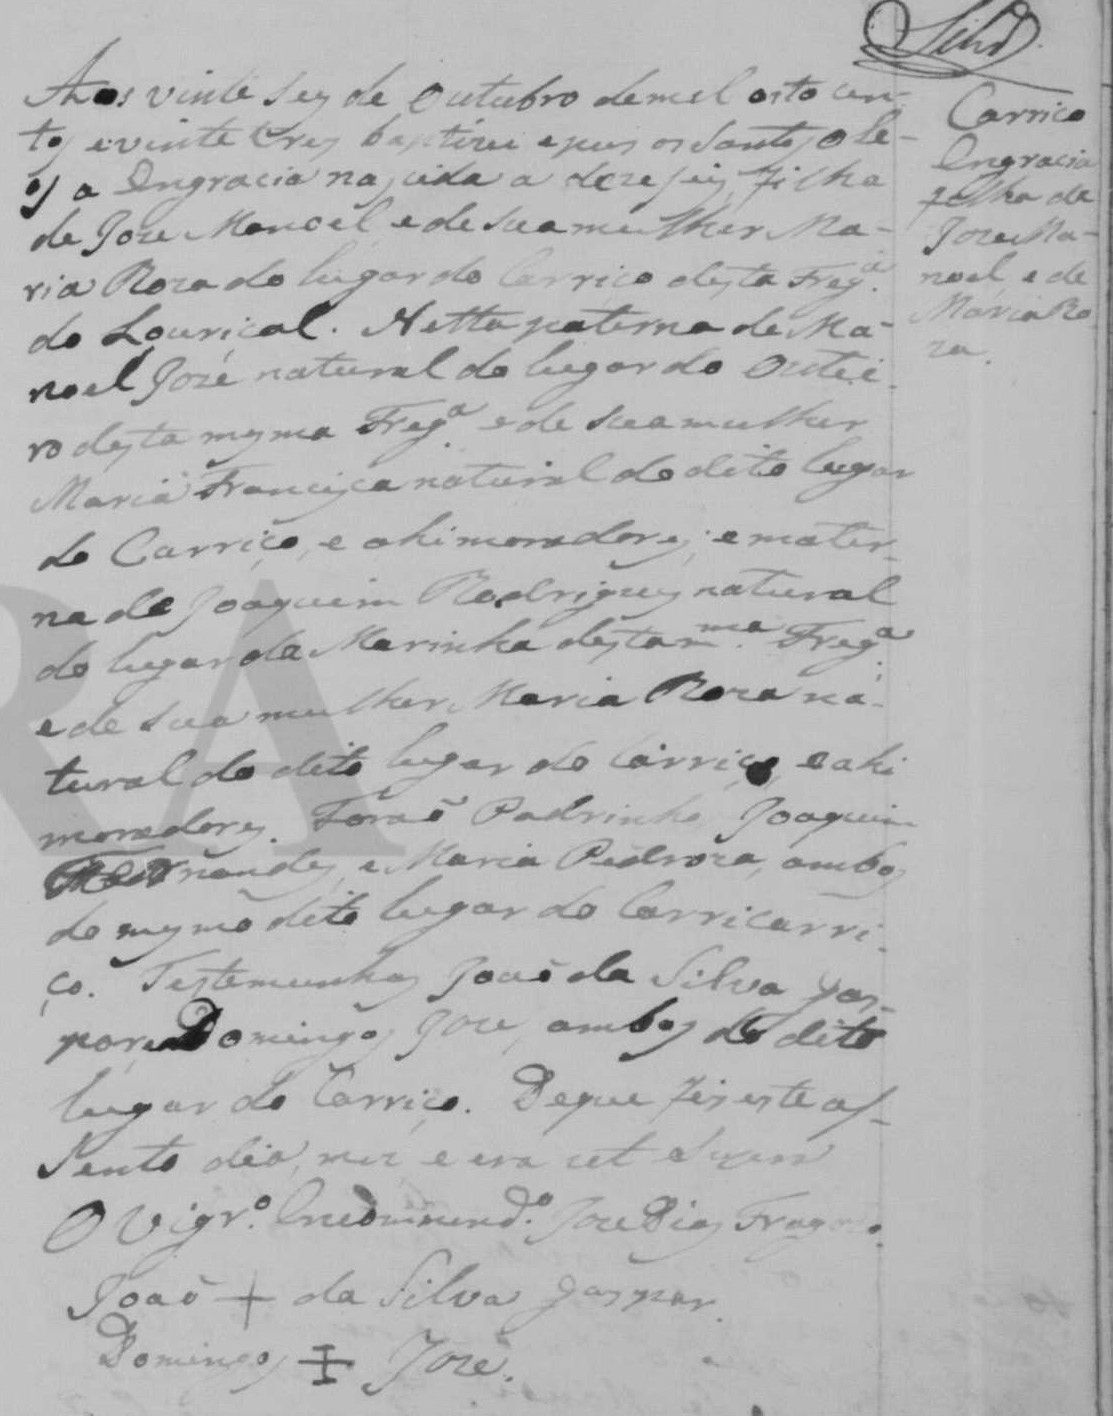 Silva
Carriço
Engracia
filha de
Joze Ma-
noel e de
Maria Ro
za.
Aos vinte seis de Outubro de mil oito cen-
tos e vinte tres baptizei e pus os Santos Ole-
os a Engracia nascida a dezeseis, filha
de Joze Manoel e de sua mulher Ma-
ria Roza do lugar do Carriço desta Freg.ª
do Louriçal. Netta paterna de Ma-
noel José natural do lugar do Outei-
ro desta mesma Fregª e de sua mulher
Maria Francisca natural do dito lugar
do Carriço, e ahi moradores; e mater-
na de Joaquim Rodrigues natural
do lugar da Marinha desta m.ma Freg.ª
e de sua mulher Maria Roza na-
tural do dito lugar do Carriço, e ahi
moradores. Foraõ Padrinhos Joaquim
Fernandes, e Maria Pedroza, ambos
do mesmo dito lugar do Carricarri-
ço. Testemunhas Joaõ da Silva Gas-
par, Domingos Joze, ambos do dito
lugar do Carriço. De que fis este as-
sento dia, mez e era ut supra
O Vigr.º Encommend.º Joze Dias Fragozo.
Joaõ + da Silva Gaspar.
Domingos + Joze.
RA